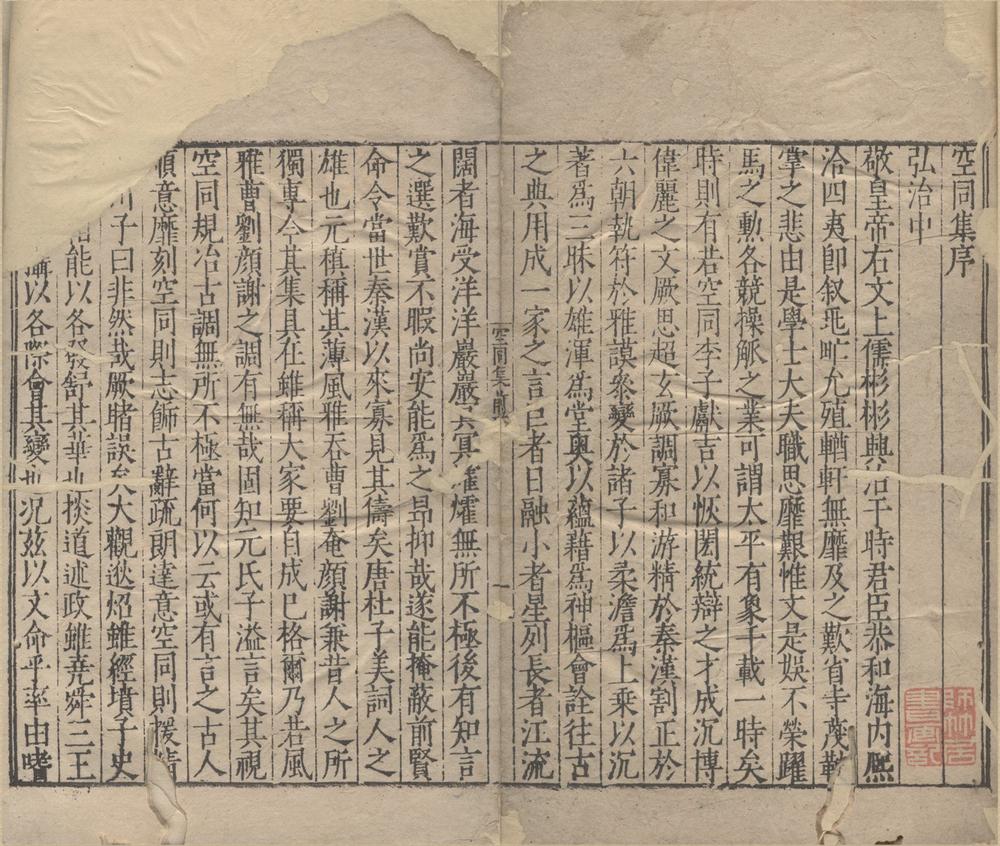 空同集序
弘治中
敬皇帝右文上儒彬彬興治于時君臣恭和海内熈
洽四夷即叙兆甿允殖輶軒無靡及之歎省寺蔑鞅
掌之悲由是學士大夫職思靡艱惟文是娛不榮躍
馬之勲各競操觚之業可謂太平有象千載一時矣
時則有若空同李子獻吉以恢閎統辯之才成沉博
偉麗之文厥思超玄厥調寡和游精於秦漢割正於
六朝執符於雅謨參變於諸子以柔澹爲上乗以沉
著爲三昧以雄渾爲堂奥以蘊藉爲神樞會詮往古
之典用成一家之言已者日融小者星列長者江流
空同集前
一
闊者海受洋洋巖巖冥燿無所不極後有知言
之選歎賞不暇尚安能爲之昻抑哉遂能掩蔽前賢
命令當世秦漢以來寡見其儔矣唐杜子美詞人之
雄也元稹稱其薄風雅吞曹劉奄顔謝兼昔人之所
獨專今其集具在雖稱大家要自成已格爾乃若風
雅曹劉顔謝之調有無哉固知元氏子溢言矣其視
空同規冶古調無所不極當何以云或有言之古人
順意靡刻空同則志飾古辭疏朗達意空同則援情
川子曰非然哉厥睹誤矣大觀逖炤雖經墳子史
能以各發舒其華也掞道述政雖堯舜三王
以各際會其變也况兹以文命乎率由嗜